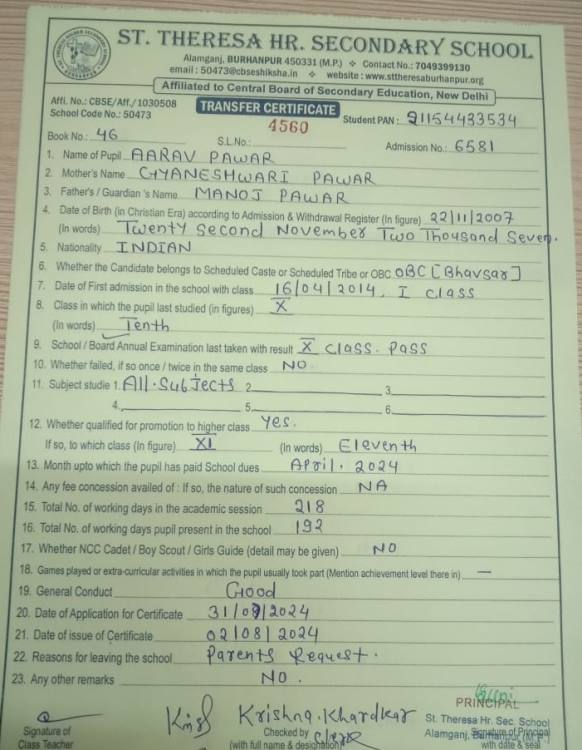 ST. THERESA HR. SECONDARY SCHOOL
Alamganj, BURHANPUR 450331 (M.P.) ❖ Contact No.: 7049399130
email : 50473@cbseshiksha.in ❖ website : www.sttheresaburhanpur.org
Affiliated to Central Board of Secondary Education, New Delhi
Affi. No.: CBSE/Aff./1030508
TRANSFER CERTIFICATE
School Code No.: 50473
4560
Student PAN : 21154433534
Book No.: 46
S.L.No.:
Admission No.: 6581
1. Name of Pupil AARAV PAWAR
2. Mother's Name GYANESHWARI PAWAR
3. Father's / Guardian 's Name MANOJ PAWAR
4. Date of Birth (in Christian Era) according to Admission & Withdrawal Register (In figure) 22/11/2007
(In words) Twenty Second November Two Thousand Seven.
5. Nationality INDIAN
6. Whether the Candidate belongs to Scheduled Caste or Scheduled Tribe or OBC OBC [Bhavsar]
7. Date of First admission in the school with class 16/04/2014, I class
8. Class in which the pupil last studied (in figures) X
(In words) Tenth
9. School / Board Annual Examination last taken with result X class. Pass
10. Whether failed, if so once / twice in the same class NO
11. Subject studie 1. All. Subjects 2. 3.
4. 5. 6.
12. Whether qualified for promotion to higher class yes.
If so, to which class (In figure) XI (In words) Eleventh
13. Month upto which the pupil has paid School dues April. 2024
14. Any fee concession availed of : If so, the nature of such concession NA
15. Total No. of working days in the academic session 218
16. Total No. of working days pupil present in the school 192
17. Whether NCC Cadet / Boy Scout / Girls Guide (detail may be given) NO
18. Games played or extra-curricular activities in which the pupil usually took part (Mention achievement level there in) —
19. General Conduct Good
20. Date of Application for Certificate 31/07/2024
21. Date of issue of Certificate 02/08/2024
22. Reasons for leaving the school Parents Request.
23. Any other remarks NO.
Krishna. Khardkar
PRINCIPAL
St. Theresa Hr. Sec. School
Alamganj, Burhanpur (M.P.)
Signature of
Class Teacher
Checked by Clerk
(with full name & designation)
Signature of Principal
with date & seal